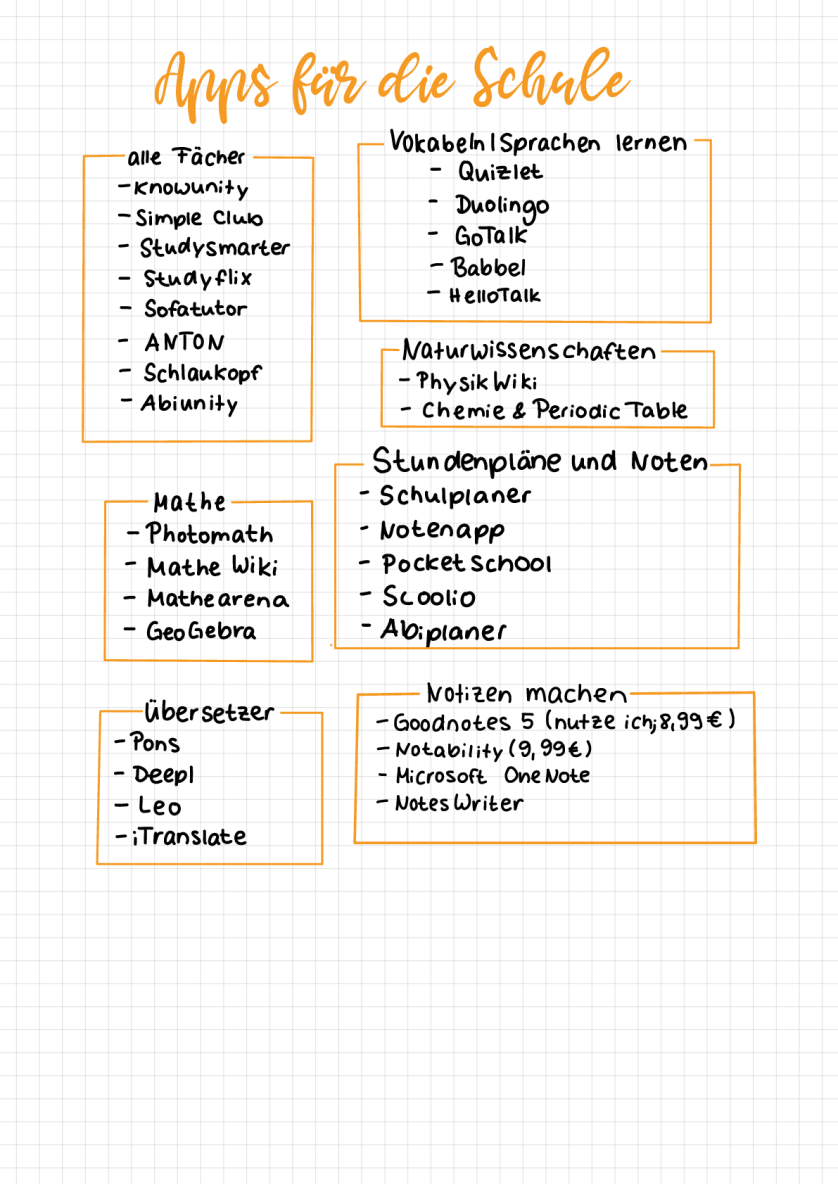 Apps für die Schule
alle Fächer
- Knowunity
- Simple Club
- Studysmarter
- Studyflix
- Sofatutor
- ANTON
- Schlaukopf
- Abiunity
Vokabeln | Sprachen lernen
- Quizlet
- Duolingo
- GoTalk
- Babbel
- HelloTalk
Naturwissenschaften
- Physik Wiki
- Chemie & Periodic Table
Mathe
- Photomath
- Mathe Wiki
- Mathearena
- GeoGebra
Stundenpläne und Noten
- Schulplaner
- Notenapp
- Pocket School
- Scoolio
- Abiplaner
Übersetzer
- Pons
- Deepl
- Leo
- iTranslate
Notizen machen
- Goodnotes 5 (nutze ich; 8,99€)
- Notability (9,99€)
- Microsoft OneNote
- Notes Writer